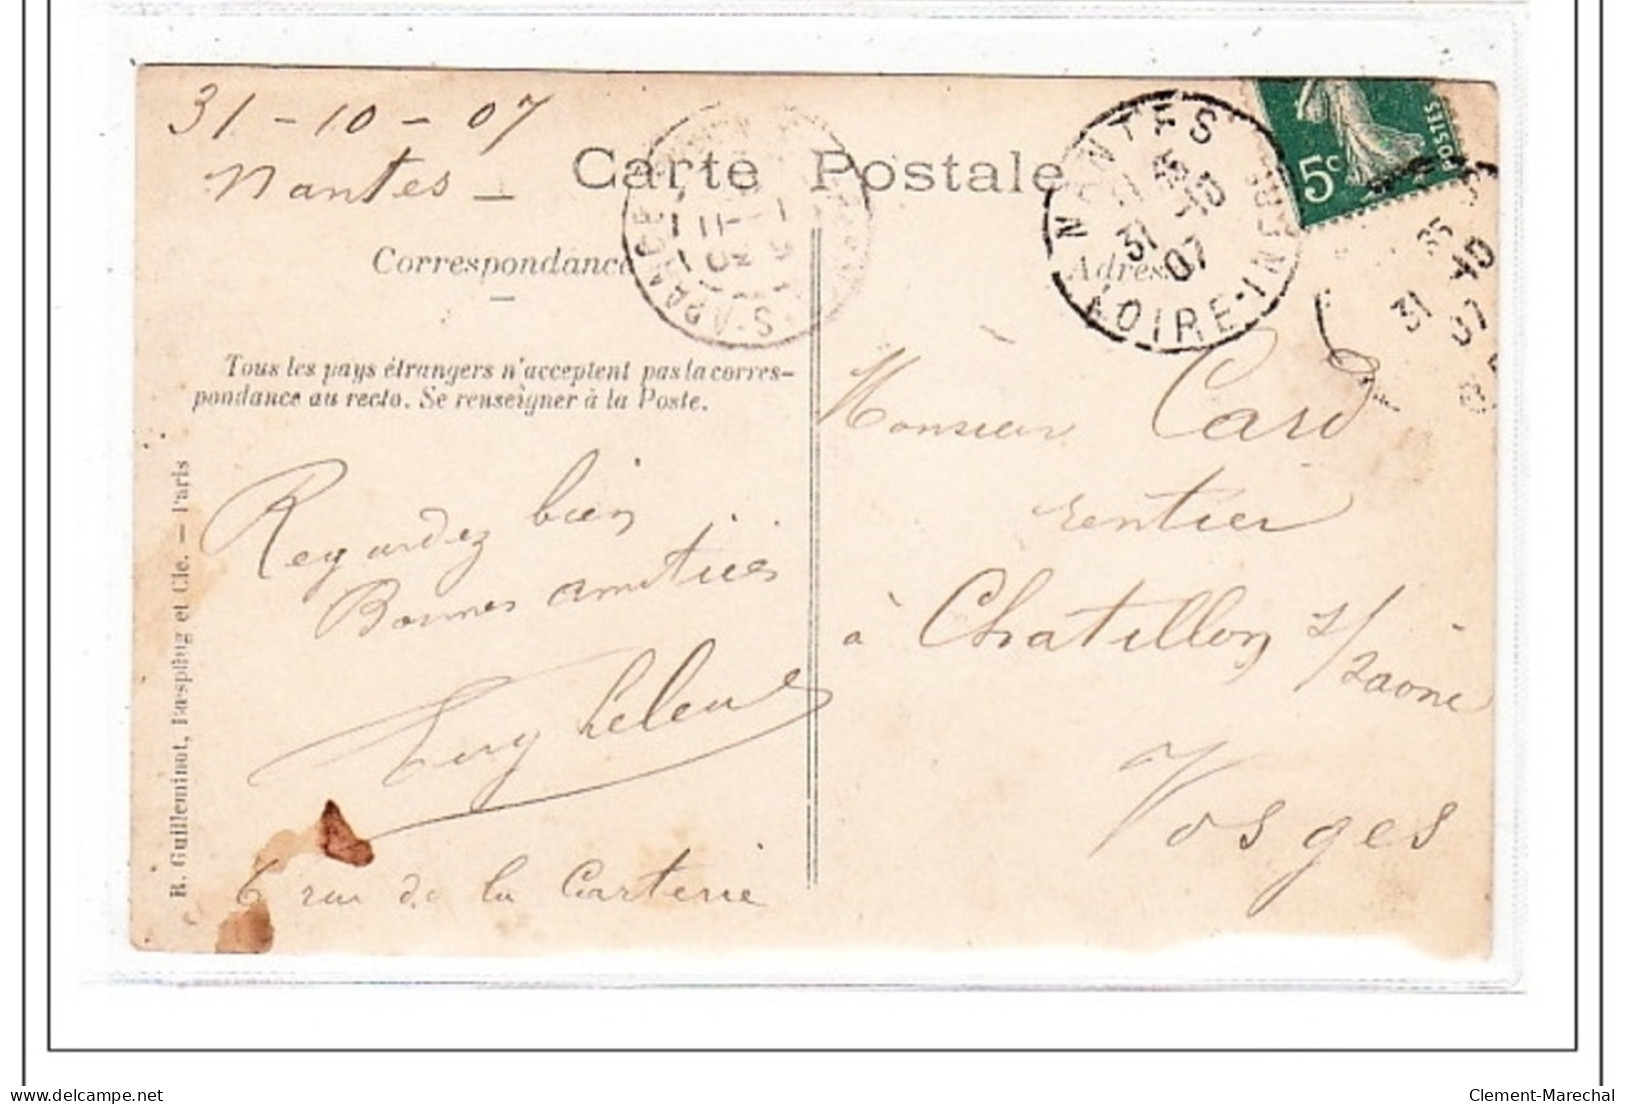 31-10-07
Nantes -
Carte Postale
NANTES
LOIRE-INFRE
31 -10
07
5c
POSTES
31 -10
07
Correspondance
Adresse
Tous les pays étrangers n'acceptent pas la corres-
pondance au recto. Se renseigner à la Poste.
R. Guilleminot, Bœspflug et Cie. — Paris
Regardez bien
Bonnes amitiés
6 rue de la
Monsieur Card
rentier
à Chatillon s/
Saône
Vosges
Clement-Marechal
delcampe.net